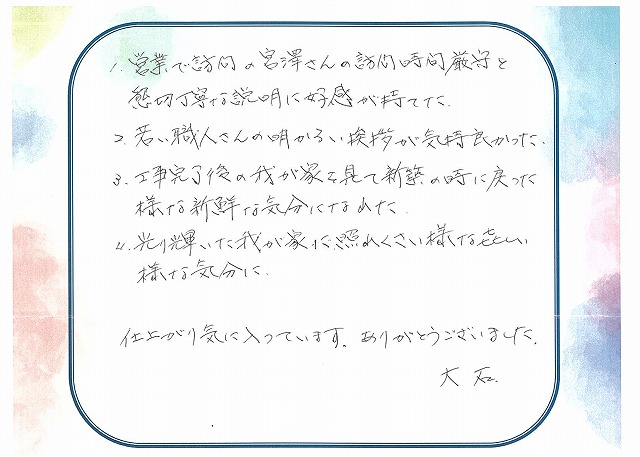 1. 営業で訪問の宮澤さんの訪問時間厳守と
懇切丁寧な説明に好感が持てた.
2. 若い職人さんの明かるい挨拶が気持良かった.
3. 工事完了後の我が家を見て新築の時に戻った
様な新鮮な気分になれた.
4. 光り輝いた我が家に照れくさい様な嬉しい
様な気分に.
仕上がり気に入っています. ありがとうございました.
大石